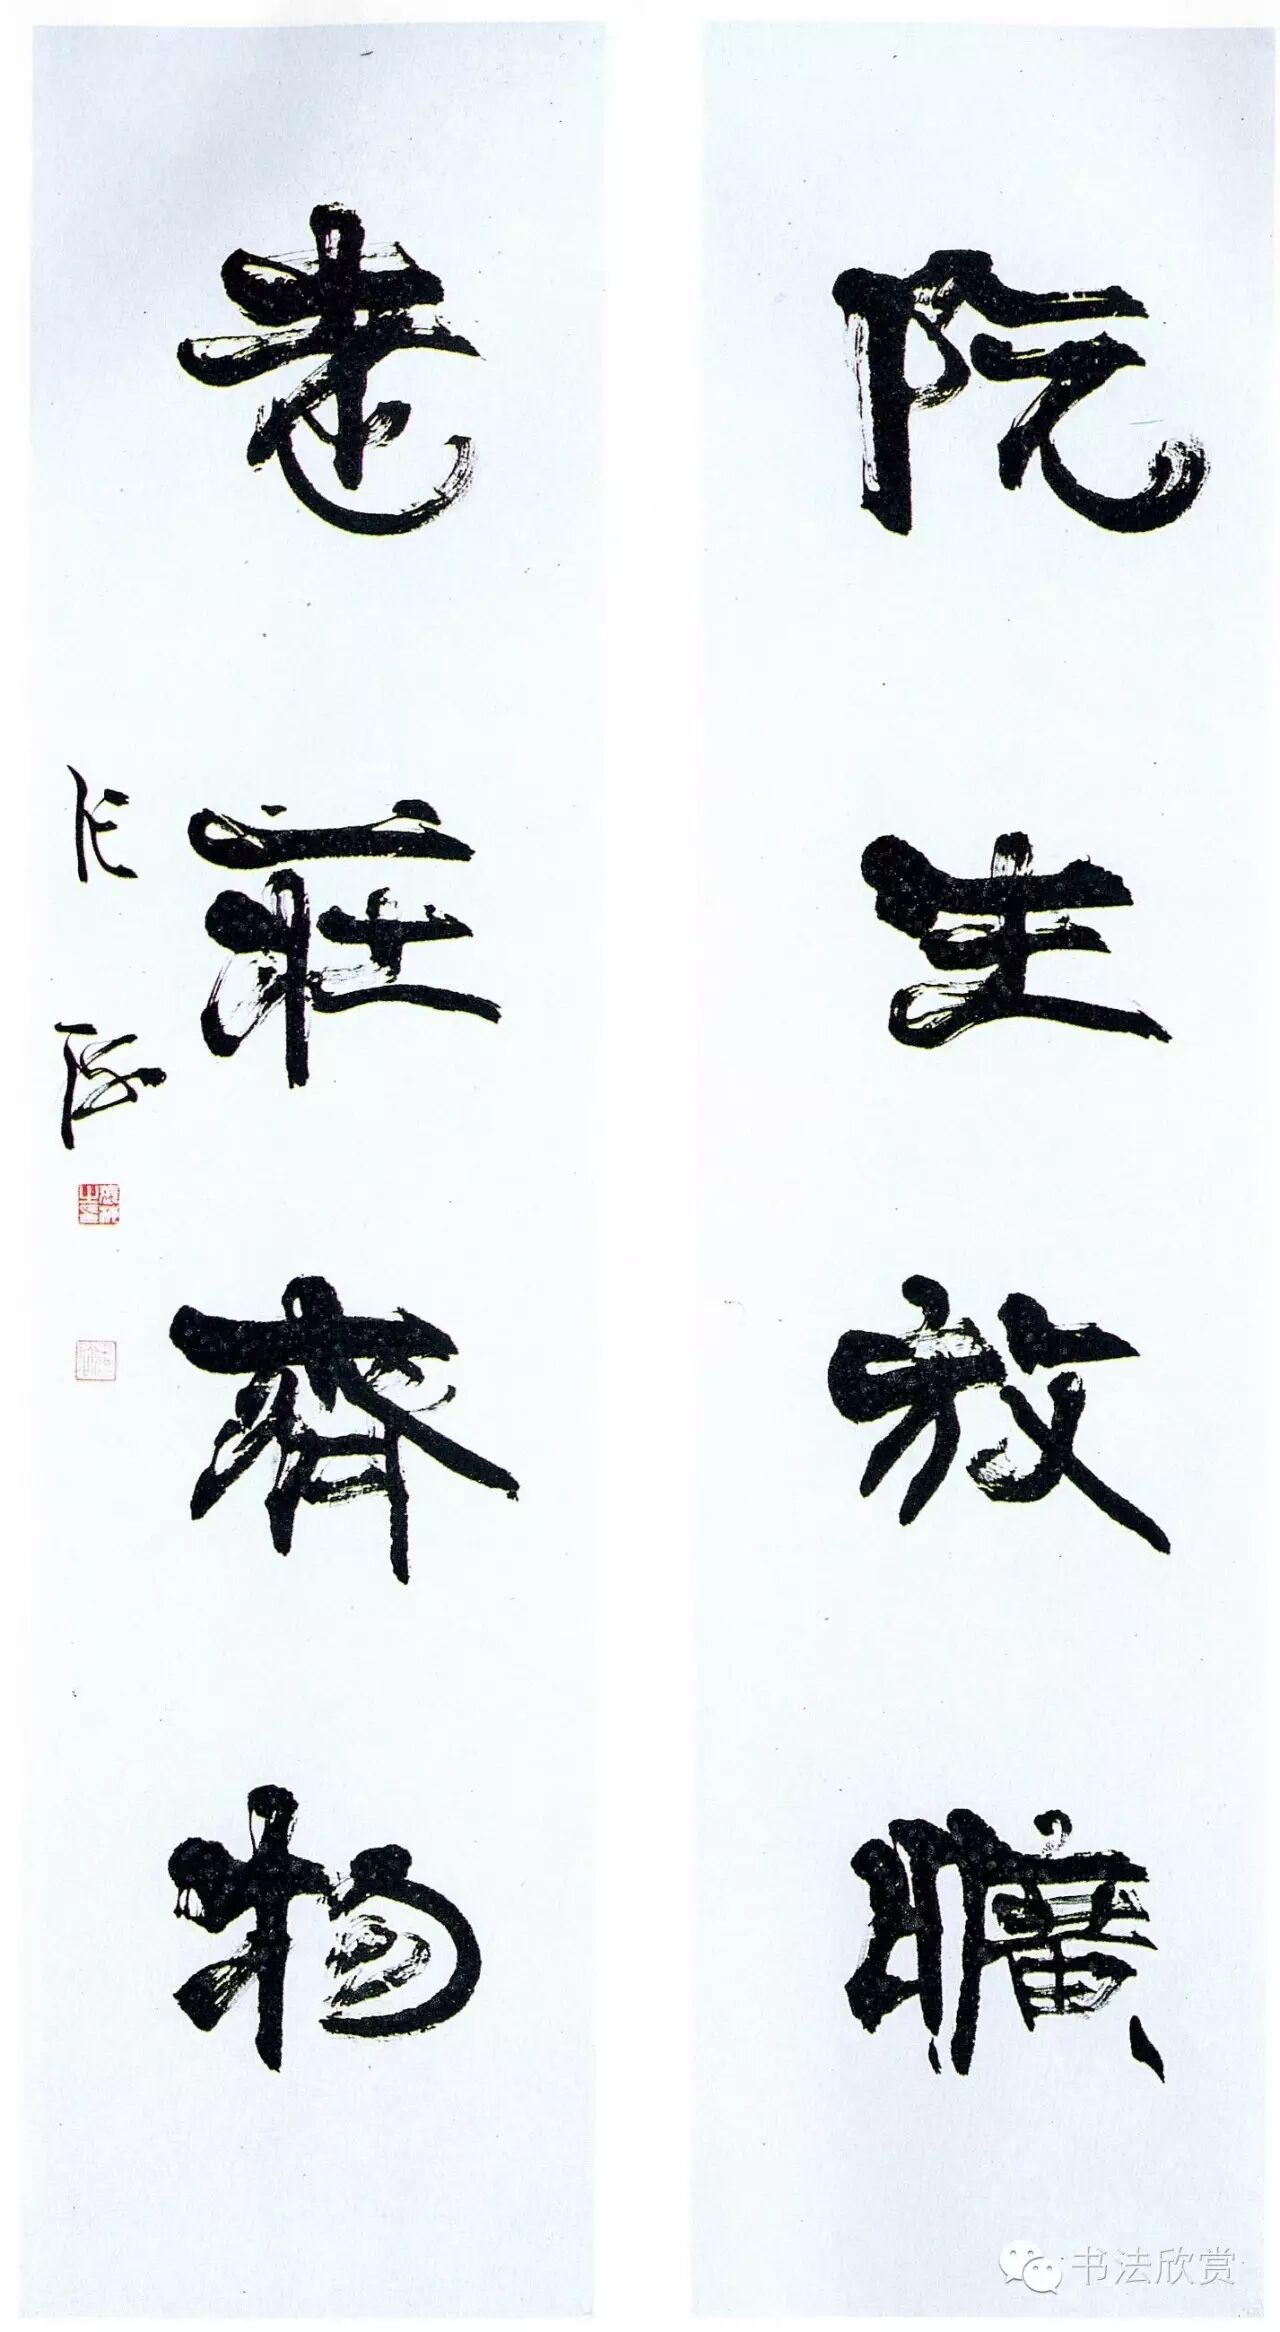 阮生放曠
老莊齊物
书法欣赏